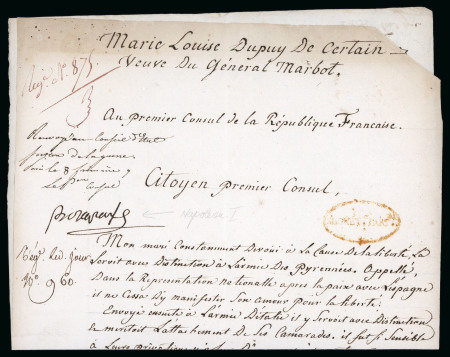 Marie Louise Dupuy De Certain
Veuve Du Général Marbot.
Reg. N.° 875
Au premier Consul de la République Francaise.
Renvoyé au Conseil d'Etat
section de la guerre
le 8
Le 1er Consul
Citoyen premier Consul,
Bonaparte
Napoléon I
N.° 960.
Mon mari Constamment Devoué à la Cause De la liberté, La
Servoit avec Distinction à L'armée Des Pyrennées. Appellé,
Dans la Représentation nationalle après la paix avec L'espagne
il ne Cessa D'y manifester Son amour pour la liberté.
Envoyé ensuite à L'armée D'italie et y Servoit avec Distinction
et méritoit L'attachement De Ses Camarades. il fut Si Sensible
à Leurs privations